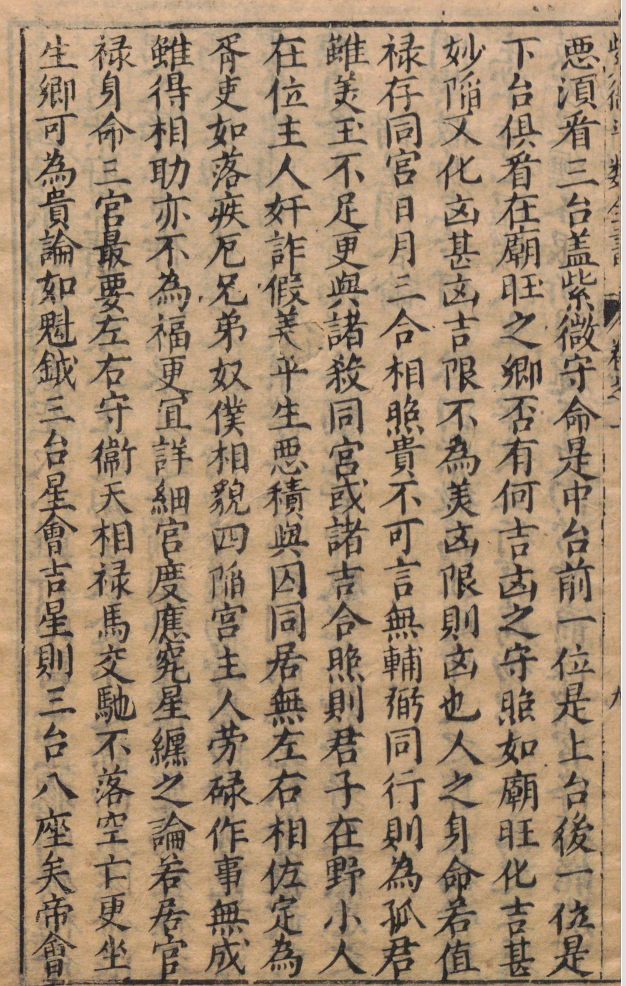 悪湏看三台盖紫微守命是中台前一位是上台後一位是
下台俱看在廟旺之鄉否有何吉凶之守照如廟旺化吉甚
妙陷又化凶甚凶吉限不為美凶限則凶也人之身命若值
禄存同宮日月三合相照貴不可言無輔弼同行則為孤君
雖美玉不足更與諸殺同宮或諸吉合照則君子在野小人
在位主人奸詐假美平生悪積與囚同居無左右相佐定為
胥吏如落疾厄兄弟奴僕相貌四陷宮主人劳碌作事無成
雖得相助亦不為福更宜詳細官度應究星纏之論若居官
禄身命三官最要左右守衛天相禄馬交馳不落空亡更坐
生鄉可為貴論如魁鉞三台星會吉星則三台八座矣帝會